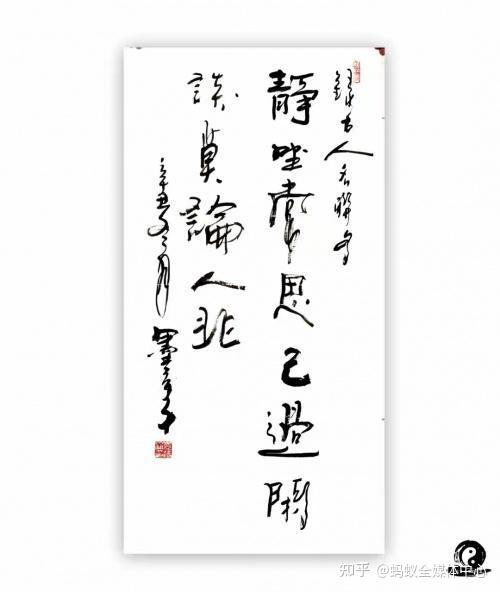 錄古人名聯句
靜坐常思己過閑
談莫論人非
辛丑冬月 墨
知乎 @蚂蚁全媒体中心